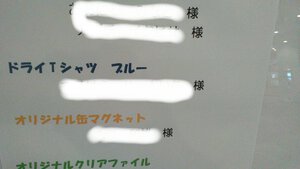 様
様
ドライTシャツ ブルー
様
オリジナル缶マグネット
様
オリジナルクリアファイル